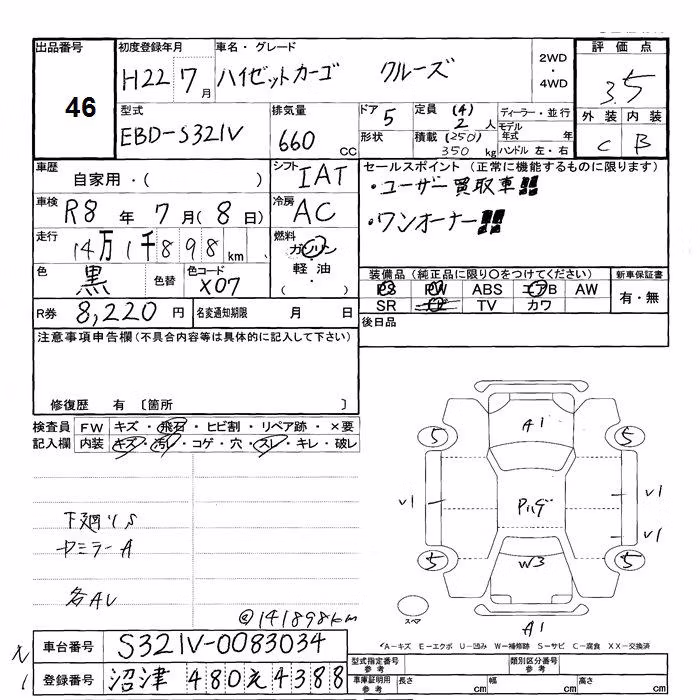 出品番号
46
初度登録年月
H22 7月
車名・グレード
ハイゼットカーゴ クルーズ
2WD
・
4WD
評価点
3.5
外装 内装
C B
型式
EBD-S321V
排気量
660 cc
ドア
5
形状
定員 (4)
2人
積載 (250)
350 kg
ディーラー・並行
モデル年式 年
ハンドル 左・右
車歴
自家用・( )
シフト
IAT
車検
R8年 7月(8日)
冷房
AC
走行
14万1千898km
燃料
ガソリン
軽油
( ・ )
色
黒
色替
色コード
X07
R券 8,220円
名変通知期限 月 日
セールスポイント (正常に機能するものに限ります)
・ユーザー買取車!!
・ワンオーナー!!
装備品(純正品に限り○をつけてください)
PS PW ABS エアB AW
SR TV カワ
新車保証書
有・無
後日品
注意事項申告欄(不具合内容等は具体的に記入して下さい)
修復歴 有 〔箇所 〕
検査員記入欄
FW キズ・飛石・ヒビ割・リペア跡・×要
内装 キズ・汚れ・コゲ・穴・スレ・キレ・破レ
下廻りS
各AU
@141898km
A1
5
5
V1
V1
V1
W3
5
5
スペア
A1
A-キズ E-エクボ U-凹み W-補修跡 S-サビ C-腐食 XX-交換済
車台番号 S321V-0083034
登録番号 沼津 480え4388
型式指定番号
参考
類別区分番号
参考
車庫証明用
参考
長さ cm
幅 cm
高さ cm